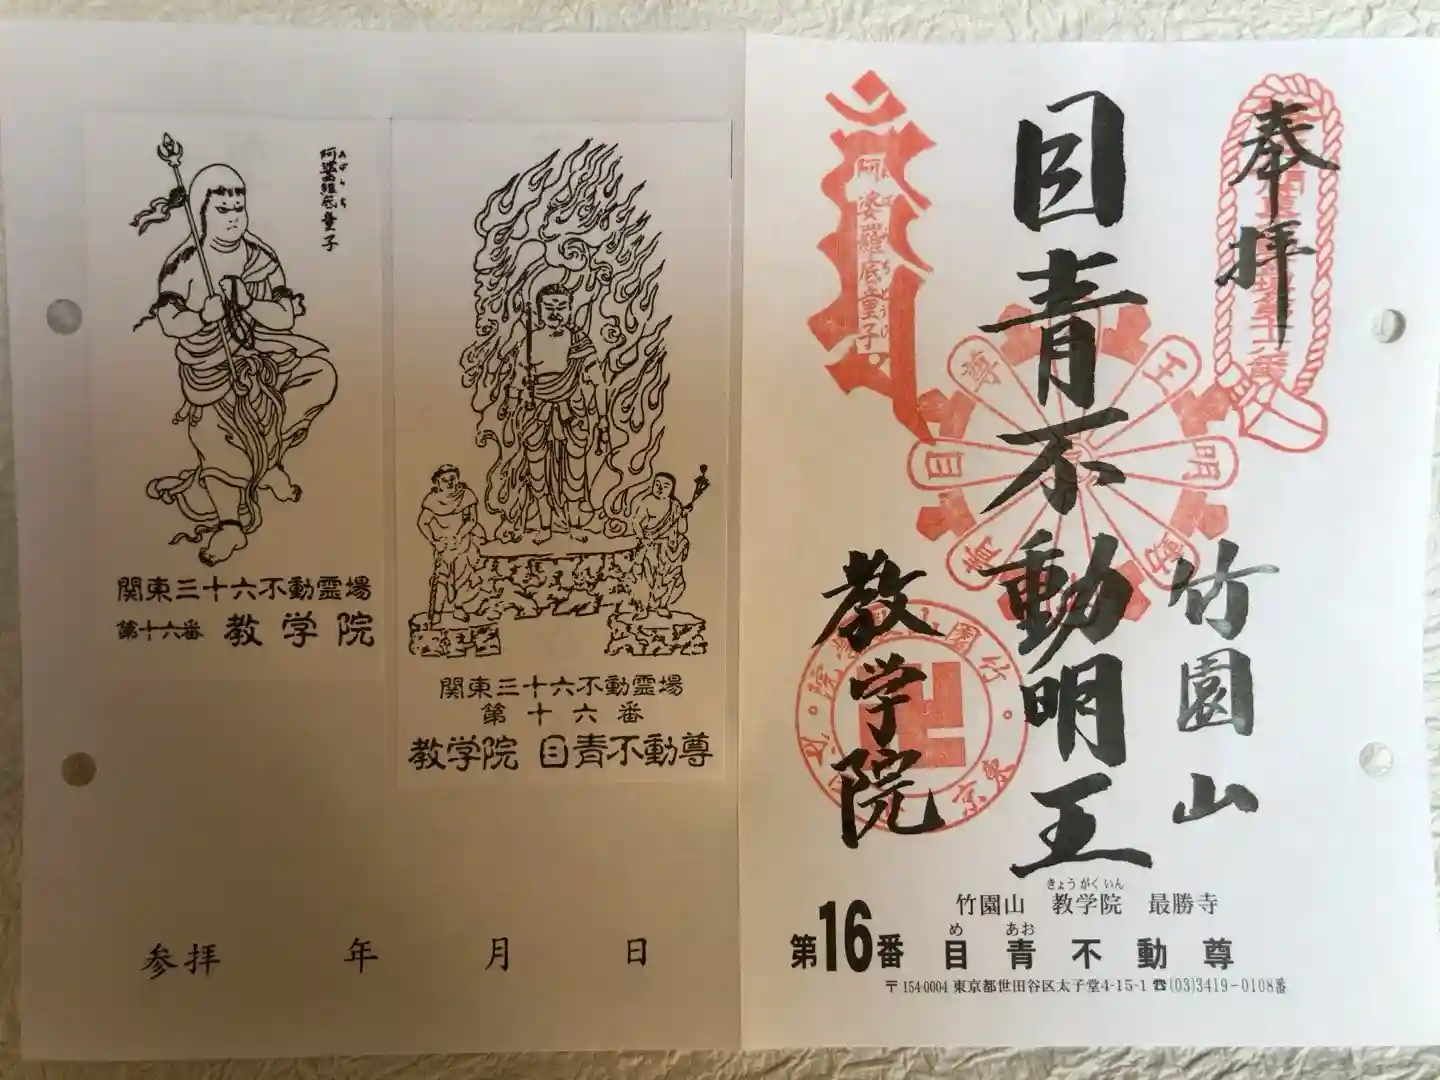 阿婆羅底童子
あばらち
関東三十六不動霊場
第十六番 教学院
関東三十六不動霊場
第十六番
教学院 目青不動尊
参拝 年 月 日
奉拝
竹園山
目青不動明王
教学院
阿婆羅底童子
目青不動明王尊
竹園山
東京
きょうがくいん
竹園山 教学院 最勝寺
め あお
第16番 目青不動尊
〒154-0004 東京都世田谷区太子堂4-15-1 ☎(03)3419-0108番